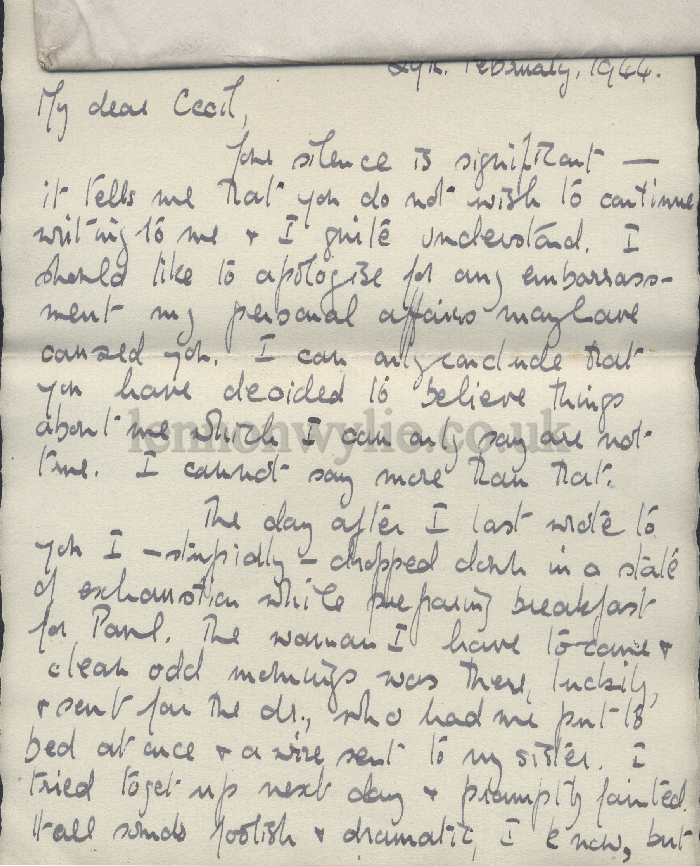 February, 1944.
My dear Cecil,
Your silence is significant —
it tells me that you do not wish to continue
writing to me + I quite understand. I
should like to apologise for any embarrass-
ment my personal affairs may have
caused you. I can only conclude that
you have decided to believe things
about me which I can only say are not
true. I cannot say more than that.
lennonwylie.co.uk
The day after I last wrote to
you I – stupidly – dropped down in a state
of exhaustion while preparing breakfast
for Paul. The woman I have to come +
clean odd mornings was there, luckily,
+ sent for the dr., who had me put to
bed at once + a wire sent to my sister. I
tried to get up next day + promptly fainted.
It all sounds foolish + dramatic, I know, but